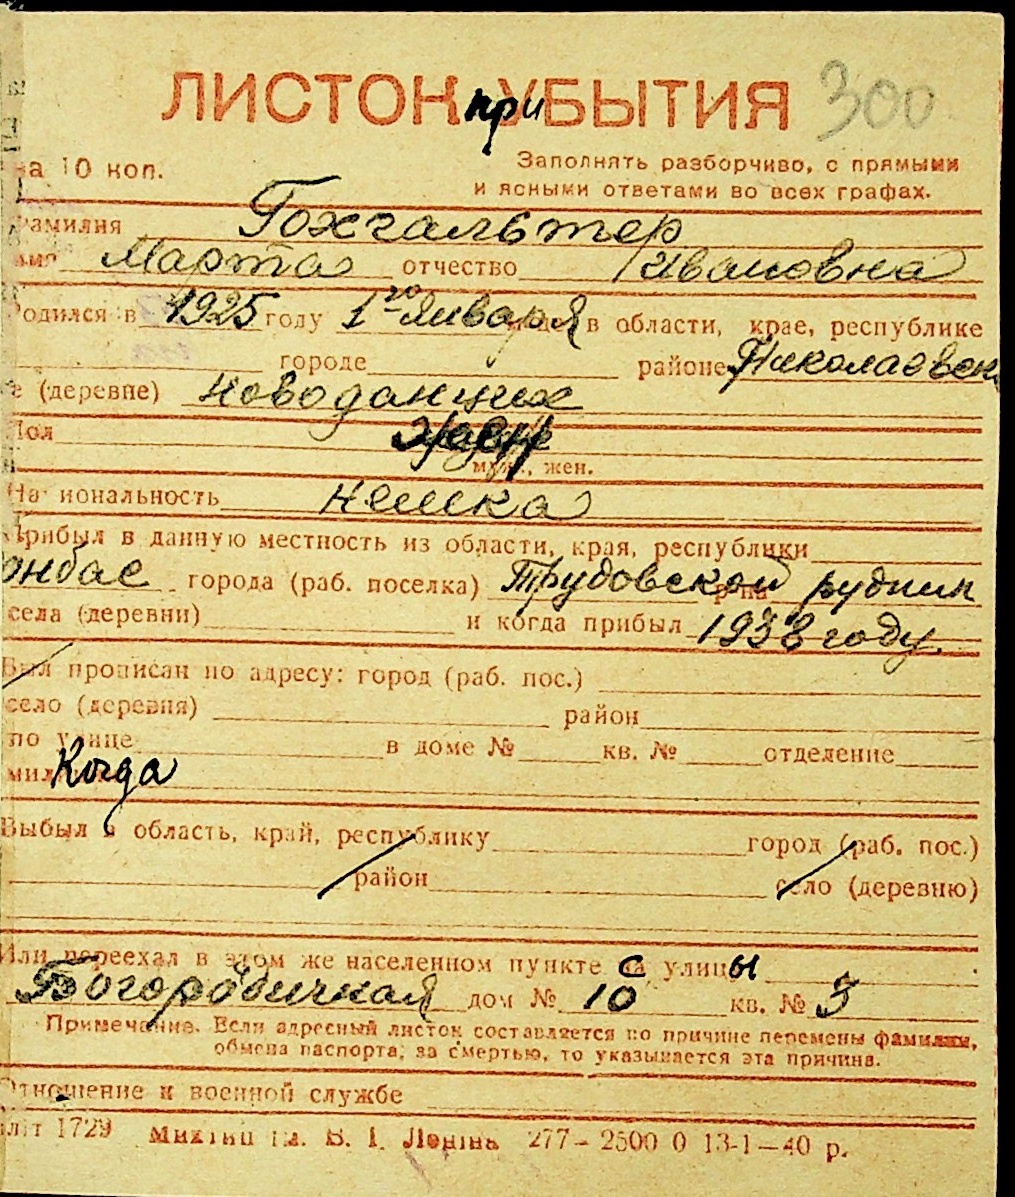 ЛИСТОК при УБЫТИЯ 300
на 10 коп.
Заполнять разборчиво, с прямыми
и ясными ответами во всех графах.
Фамилия Гохгальтер
Имя Марта отчество Ивановна
Родился в 1925 году 1го Января в области, крае, республике
городе районе Николаевск
е (деревне) Новоданциг
Пол жен
муж., жен.
Национальность немка
Прибыл в данную местность из области, края, республики
онбас города (раб. поселка) Трудовской р-на рудник
села (деревни) и когда прибыл 1938 году
Был прописан по адресу: город (раб. пос.)
село (деревня) район
по улице в доме № кв. № отделение
мил Когда
Выбыл в область, край, республику город (раб. пос.)
район село (деревню)
Или переехал в этом же населенном пункте с улицы
Богородичная дом № 10 кв. № 3
Примечание. Если адресный листок составляется по причине перемены фамилии,
обмена паспорта, за смертью, то указывается эта причина.
Отношение к военной службе
літ 1729 ім. В. І. Леніна 277—2500 0 13-1—40 р.